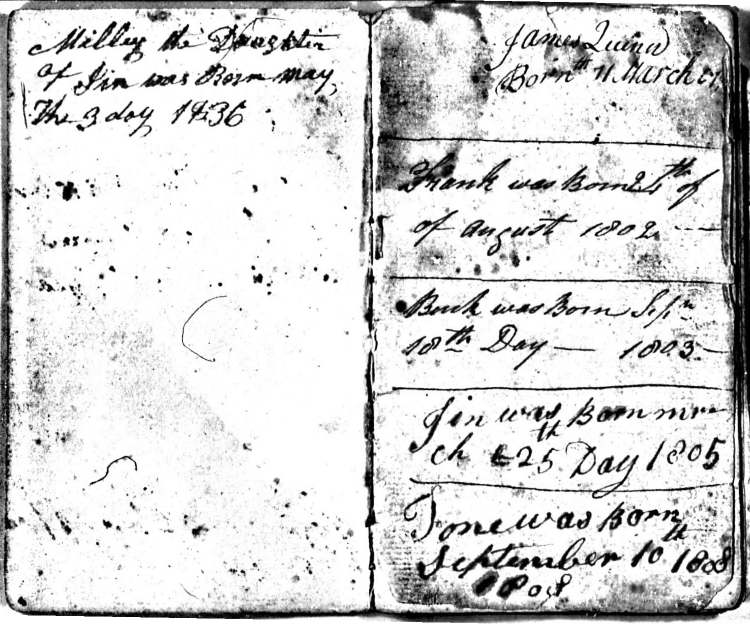 Milley the Daughter
of Jin was Born may
The 3 day 1836
James Quinn
Born 11th March
Frank was Born 24th of
of august 1802 —
was Born Sepn
18th Day — 1803 —
Jin was Born mar
ch 25th Day 1805
Tone was Born
September 10th 1808
1808